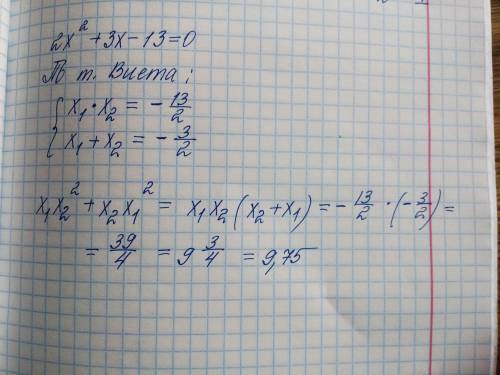 2x² + 3x - 13 = 0
По т. Виета:
{ x₁ · x₂ = - 13/2
{ x₁ + x₂ = - 3/2
x₁x₂² + x₂x₁² = x₁x₂(x₂ + x₁) = - 13/2 · (- 3/2) =
= 39/4 = 9 3/4 = 9,75